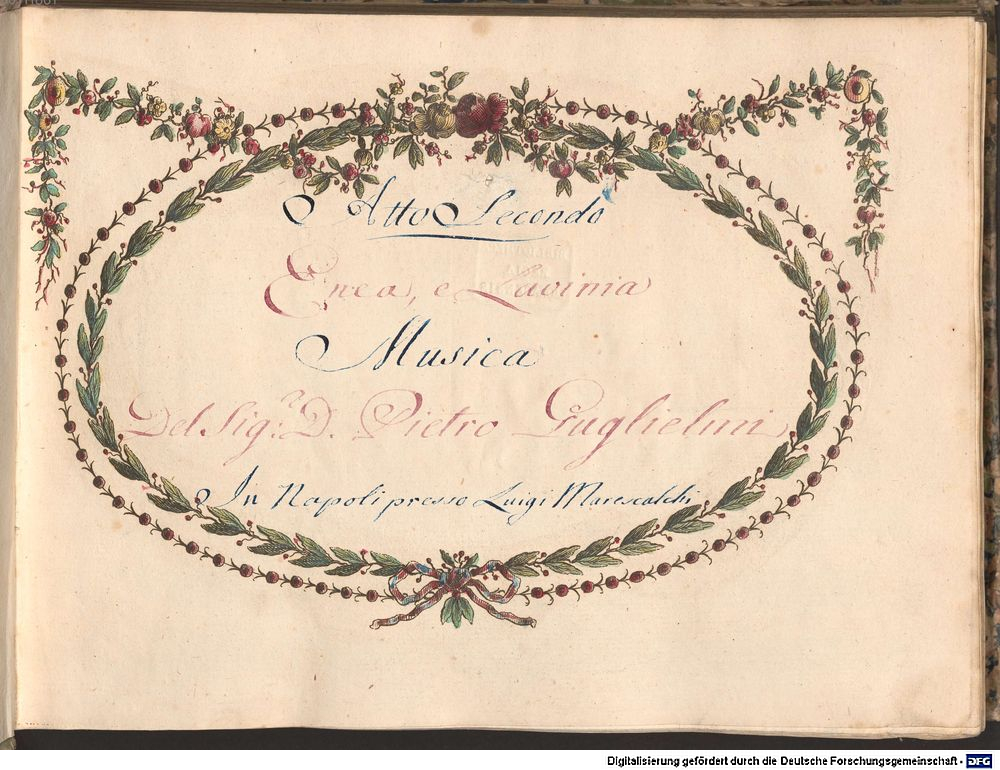 Atto Secondo
Enea, e Lavinia
Musica
Del Sig.r D. Pietro Guglielmi
In Napoli presso Luigi Marescalchi
Digitalisierung gefördert durch die Deutsche Forschungsgemeinschaft - DFG